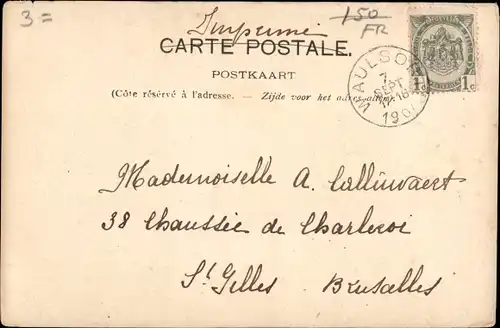 3=
Imprimé
150
FR
CARTE POSTALE.
POSTKAART
(Côte réservé à l'adresse. — Zijde voor het adres
WAULSOR
7
SEPT
17-18
190
1c 1c
Mademoiselle A. Callewaert
38 Chaussée de Charleroi
St Gilles - Bruxelles